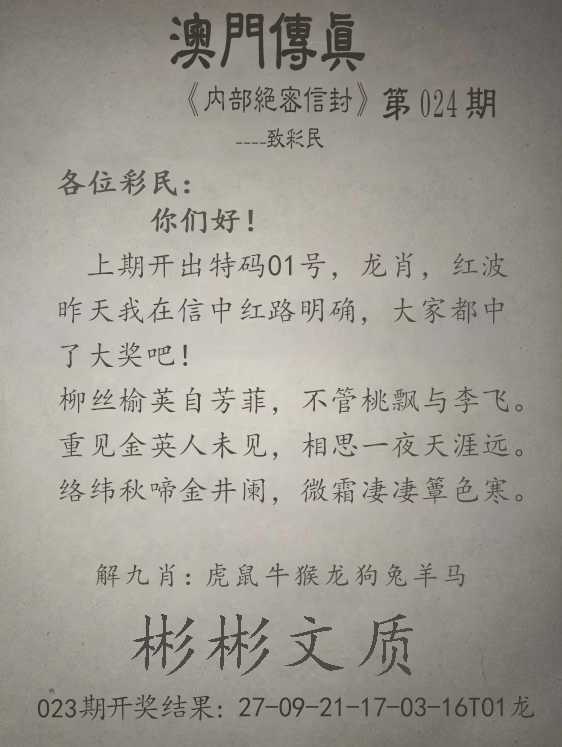 澳門傳眞
《内部絕密信封》第024期
----致彩民
各位彩民：
你们好！
上期开出特码01号，龙肖，红波
昨天我在信中红路明确，大家都中
了大奖吧！
柳丝榆荚自芳菲，不管桃飘与李飞。
重见金英人未见，相思一夜天涯远。
络纬秋啼金井阑，微霜凄凄簟色寒。
解九肖：虎鼠牛猴龙狗兔羊马
彬彬文质
023期开奖结果：27-09-21-17-03-16T01龙